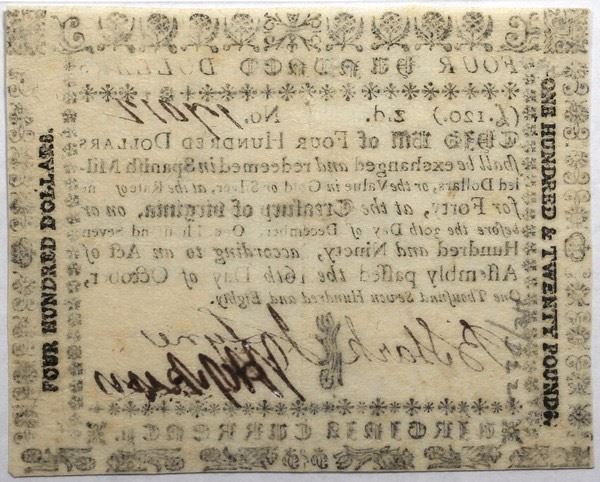 FOUR HUNDRED DOLLARS
(£.120.) 2.d. No.
THIS Bill of FOUR HUNDRED DOLLARS
ſhall be exchanged and redeemed in Spaniſh Mil-
led Dollars, or the Value in Gold or Silver, at the Rate of ne
for Forty, at the Treaſury of Virginia, on or
before the 30th Day of December, One Thouſand Seven
Hundred and Ninety, according to an Act of
Aſſembly paſſed the 16th Day of October,
One Thouſand Seven Hundred and Eighty.
B Stark Lyne
VIRGINIA CURRENCY.
FOUR HUNDRED DOLLARS.
ONE HUNDRED & TWENTY POUNDS.